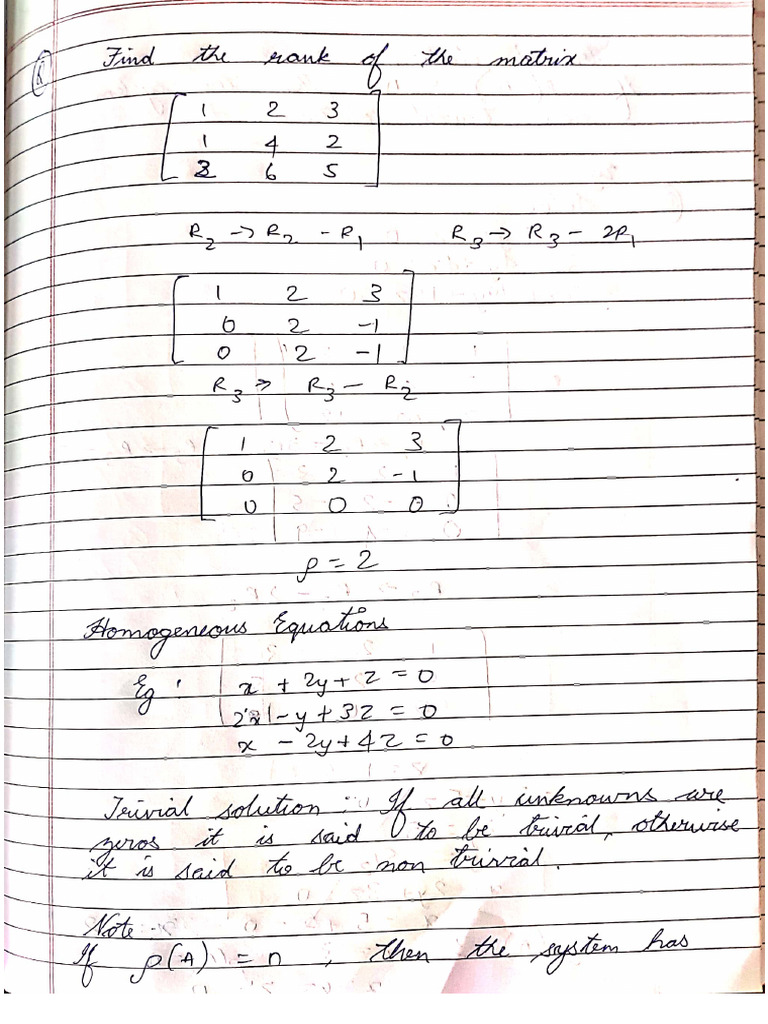 Find the rank of the matrix
1 2 3
1 4 2
2 6 5
R2 → R2 - R1 R3 → R3 - 2R1
1 2 3
0 2 -1
0 2 -1
R3 → R3 - R2
1 2 3
0 2 -1
0 0 0
ρ = 2
Homogeneous Equations
Eg : x + 2y + z = 0
2x - y + 3z = 0
x - 2y + 4z = 0
Trivial solution : If all unknowns are
zeros it is said to be trivial, otherwise
it is said to be non trivial.
Note :-
If ρ(A) = n , then the system has